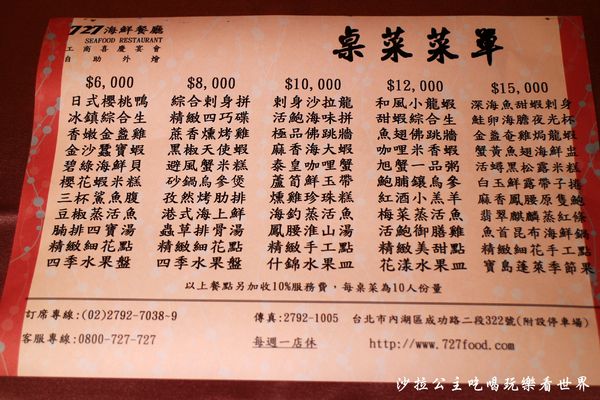 727海鮮餐廳
SEAFOOD RESTAURANT
工商喜慶宴會
自助外燴
桌菜菜單
$6,000 $8,000 $10,000 $12,000 $15,000
日式櫻桃鴨 綜合刺身拼 刺身沙拉龍 和風小龍蝦 深海魚甜蝦刺身
冰鎮綜合生 精緻四巧碟 活鮑海味拼 甜蝦綜合生 鮭卵海膽夜光杯
香嫩金盞雞 蒸香燻烤雞 極品佛跳牆 魚翅佛跳牆 金盞奄雞焗龍蝦
金沙蠶寶蝦 黑椒天使蝦 麻香海大蝦 花雕米香蝦 蟹黃魚翅海鮮盅
碧綠海鮮貝 避風蟹米糕 泰皇咖哩蟹 旭蟹一品粥 活蟳黑松露米糕
櫻花蝦米糕 砂鍋烏參煲 蘆筍鮮玉帶 鮑脯鑲烏參 白玉鮮露帶子捲
三杯鯊魚腹 孜然烤肋排 燻雞珍珠糕 紅酒小羔羊 麻香鳳腰原隻鮑
豆椒蒸活魚 港式海上鮮 海釣蒸活魚 梅菜蒸活魚 翡翠麒麟蒸紅條
腩排四寶湯 蟲草排骨湯 鳳腰淮山湯 活鮑御膳雞 魚首昆布海鮮鍋
精緻細花點 精緻細花點 精緻手工點 精緻美甜點 精緻細花手工點
四季水果盤 四季水果盤 什錦水果皿 花漾水果皿 寶島蓬萊季節果
以上餐點另加收10%服務費，每桌菜為10人份量
訂席專線:(02)2792-7038~9 傳真:2792-1005 台北市內湖區成功路二段322號(附設停車場)
客服專線:0800-727-727 每週一店休 http://www.727food.com
沙拉公主吃喝玩樂看世界